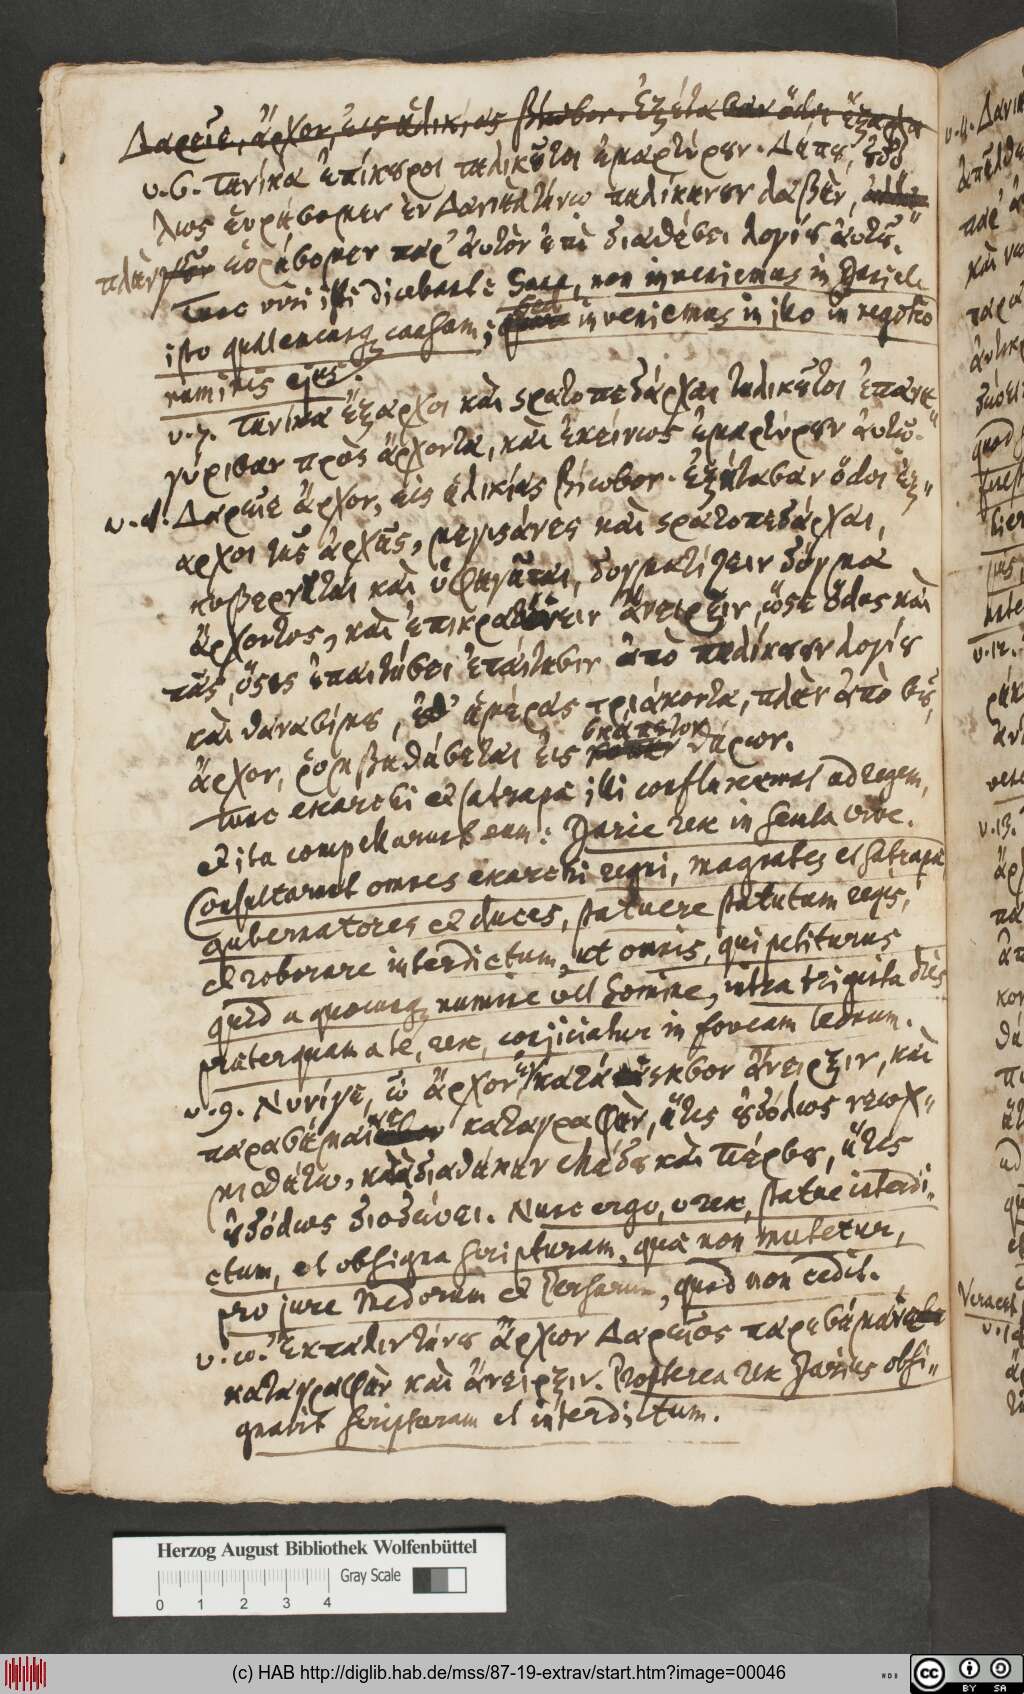 Δαρεῖε, ἄρχον, εἰς ἡλικίας βίωσον. Ἐξήτασαν ὅλοι ἔξαρχοι
v. 6. Τηνίκα ἐπίκυροι τηλικοῦτοι ἐμαρτύρουν. Δήπου, οὐδό-
λως εὑρήσομεν ἐν Δανιὴλ τήνῳ πηλίκηνουν λαβὴν,
πλὴν εὑρήσομεν παρ' αὐτὸν ἐπὶ διαθέσει λογίου αὐτοῦ.
Tunc viri illi dicebant: Sane, non inveniemus in Daniele
isto qualemcunq; causam; sed inveniemus in illo in negotio
numinis ejus.
v. 7. Τηνίκα ἔξαρχοι καὶ στρατοπεδάρχαι τηλικοῦτοι ἐπανη-
γύρισαν πρὸς ἄρχοντα, καὶ ἐκείνως ἐμαρτύρουν αὐτῷ.
Δαρεῖε ἄρχον, εἰς ἡλικίας βίωσον. Ἐξήτασαν ὅλοι ἔξ-
αρχοι τῆς ἀρχῆς, μεγιστάνες καὶ στρατοπεδάρχαι,
κυβερνῆται καὶ ὑφηγῆται, δογματίζειν δόγμα
ἄρχοντος, καὶ ἐπικρατύνειν ἄνειρξιν, ὥστε ὅλος καὶ
πᾶς, ὅστις ἐπαιτήσει ἐπαίτησιν ἀπὸ πηλίκουουν λογίου
καὶ θανασίμου, ἐς ἡμέρας τριάκοντα, πλὴν ἀπὸ σοῦ,
ἄρχον, ῥομβηθήσεται εἰς σκάπετον θήρων.
Tunc exarchi et satrapæ illi confluxerunt ad regem,
et ita compellarunt eum: Darie rex in secula vive.
Consultarunt omnes exarchi regni, magnates et satrapæ
gubernatores et duces, statuere statutum regis,
et roborare interdictum, ut omnis, qui petiturus
quid a quocunq; numine vel homine, intra triginta dies
præterquam a te, rex, conjiciatur in foveam leonum.
v. 9. Νυνίγε, ὦ ἄρχον κατάσκησον ἄνειρξιν, καὶ
παρασήμαινε καταγραφὴν, ἥτις οὐδόλως νεωχ-
μωθήτω, κατὰ διαθήκην Μήδου καὶ Πέρσου, ἥτις
οὐδόλως διοδεύσει. Nunc ergo, o rex, statue interdi-
ctum, et obsigna scripturam, quæ non mutetur,
pro jure Medorum et Persarum, quod non cedit.
v. 10. Ἔκπαλιν τήνου ἄρχων Δαρεῖος παρεσήμηνε
καταγραφὴν καὶ ἄνειρξιν. Propterea rex Darius obsi-
gnavit scripturam et interdictum.
Herzog August Bibliothek Wolfenbüttel
Gray Scale
0 1 2 3 4
(c) HAB http://diglib.hab.de/mss/87-19-extrav/start.htm?image=00046
WDB
cc BY SA